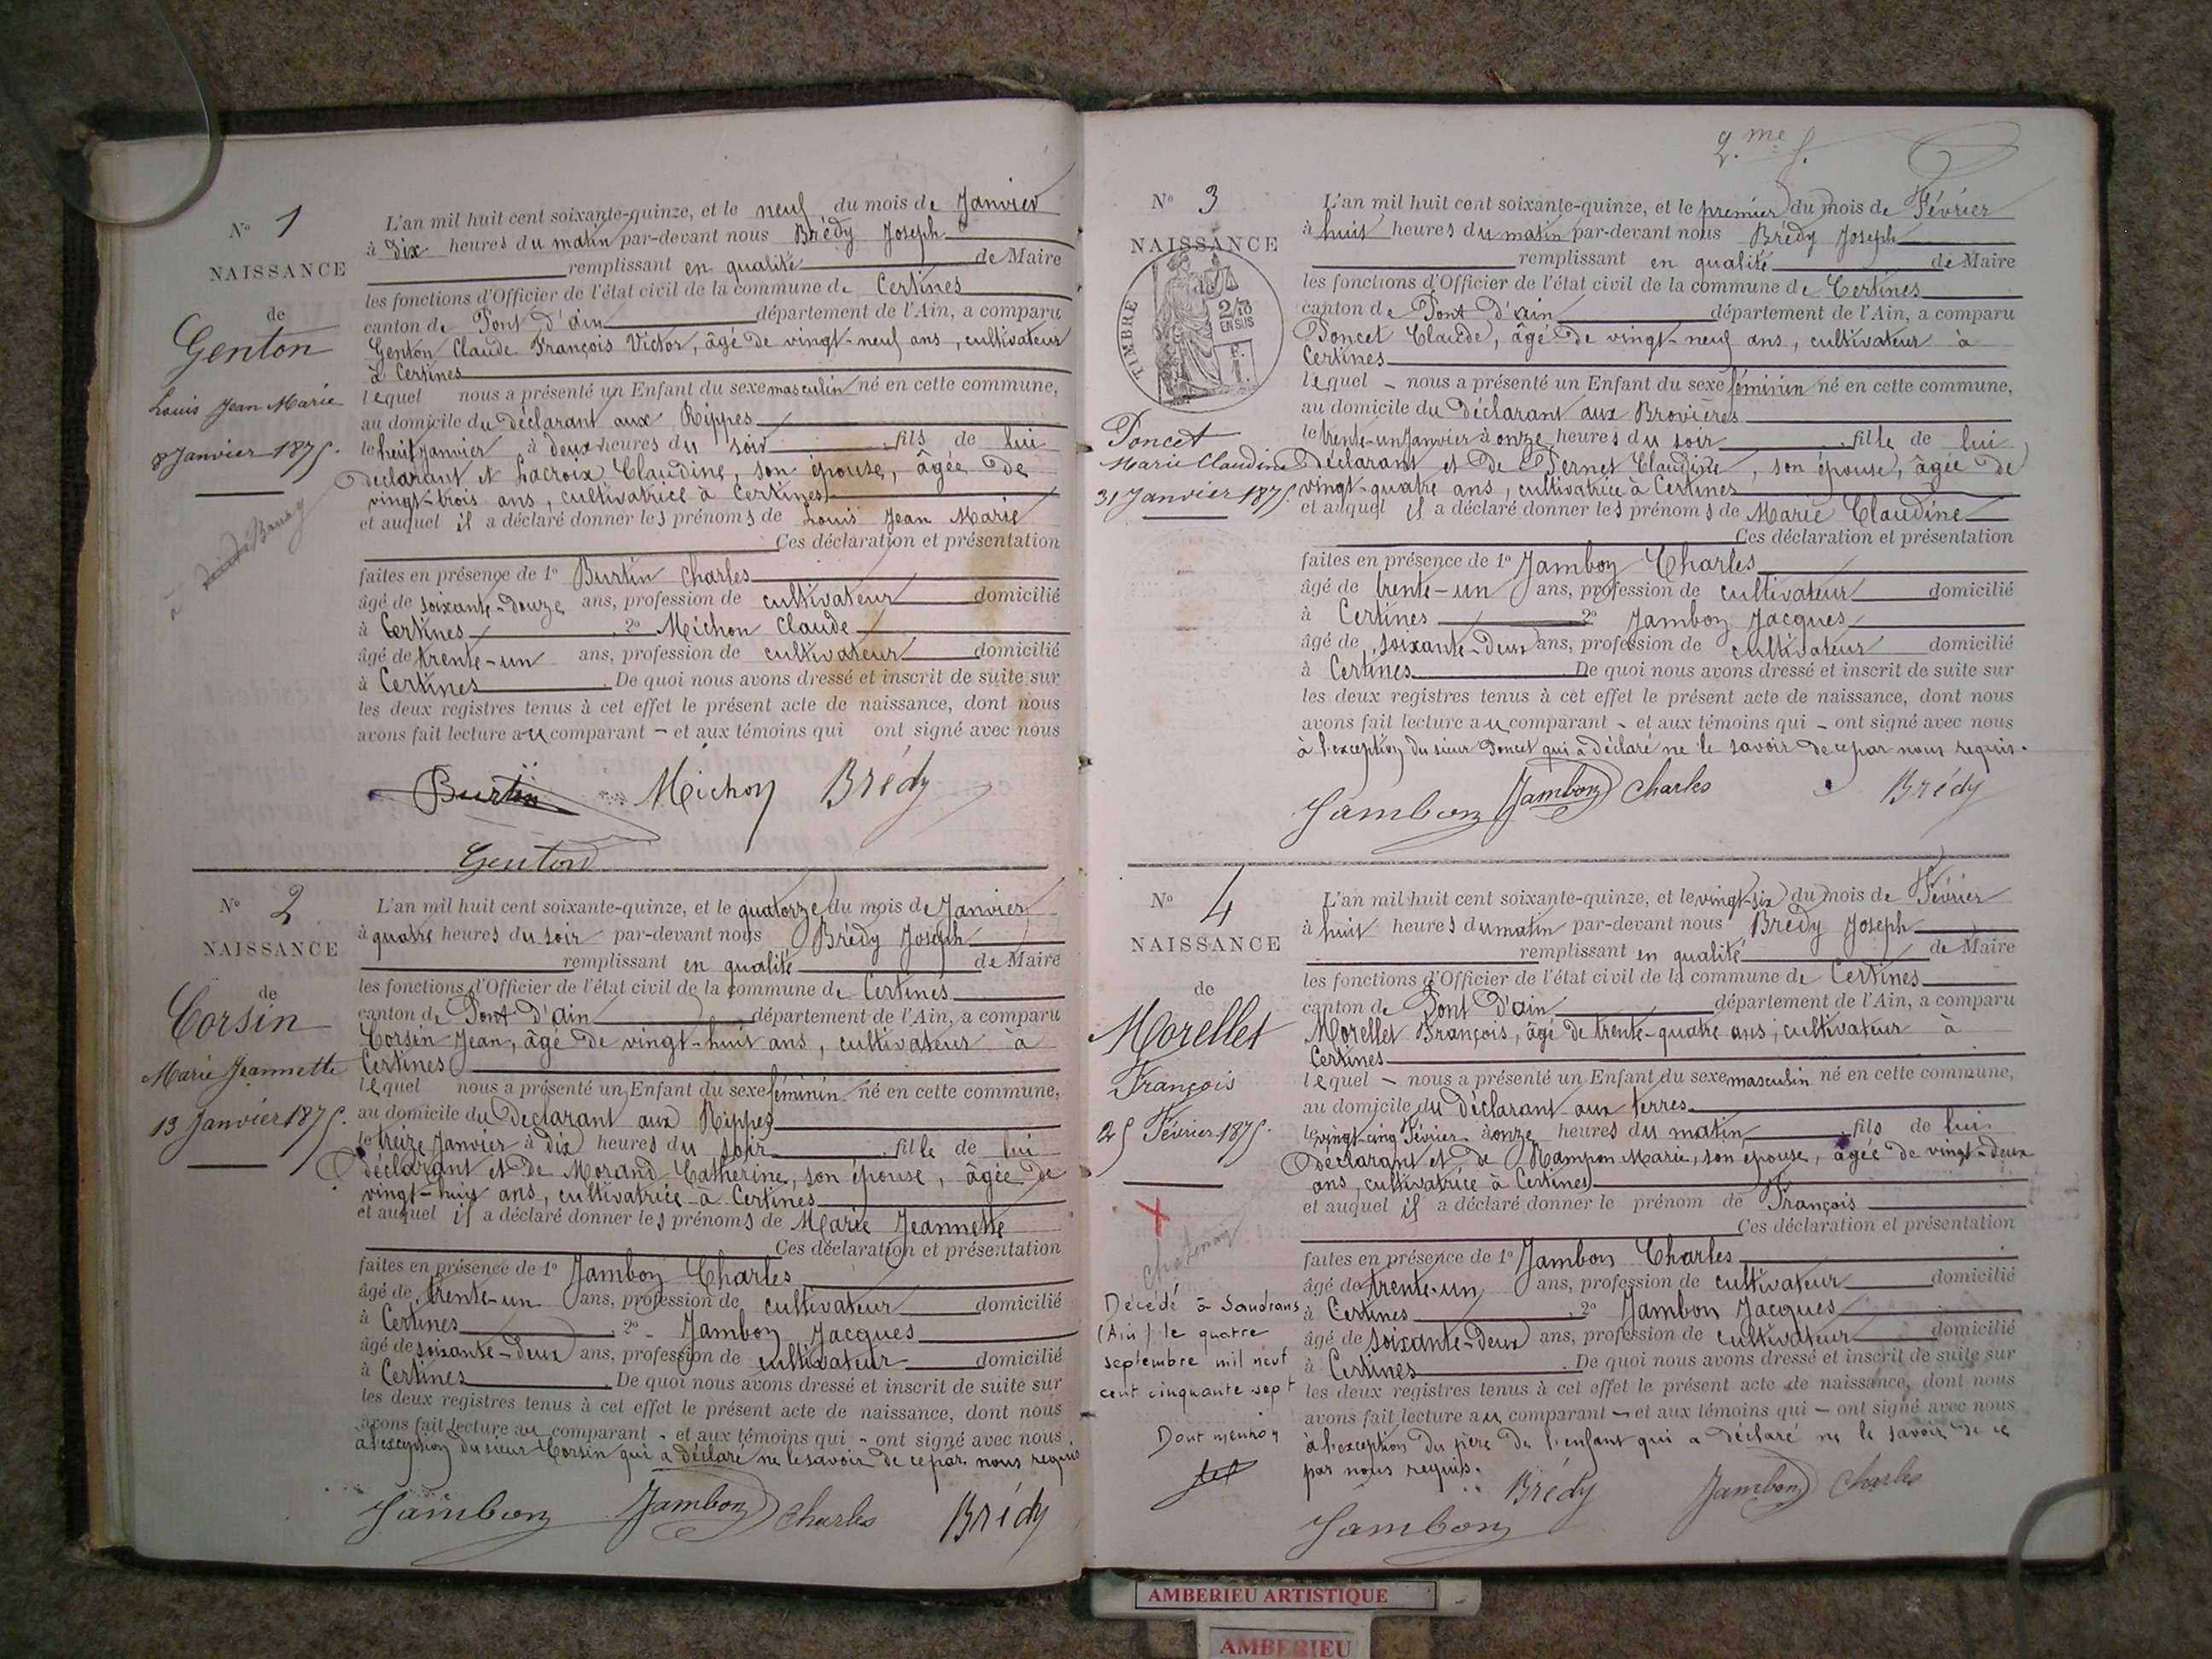 N° 1
NAISSANCE
de
Genton
Louis Jean Marie
8 Janvier 1875.
L'an mil huit cent soixante-quinze, et le neuf du mois de Janvier
à dix heures du matin par-devant nous Brédy Joseph
remplissant en qualité de Maire
les fonctions d'Officier de l'état civil de la commune de Certines
canton de Pont d'ain département de l'Ain, a comparu
Genton Claude François Victor, âgé de vingt-neuf ans, cultivateur
à Certines
lequel nous a présenté un Enfant du sexe masculin né en cette commune,
au domicile du déclarant aux Rippes
le huit janvier à deux heures du soir fils de lui
déclarant et Lacroix Claudine, son épouse, âgée de
vingt-trois ans, cultivatrice à Certines
et auquel il a déclaré donner les prénoms de Louis Jean Marie
Ces déclaration et présentation
faites en présence de 1° Burtin Charles
âgé de soixante-douze ans, profession de cultivateur domicilié
à Certines 2° Michon Claude
âgé de trente-un ans, profession de cultivateur domicilié
à Certines. De quoi nous avons dressé et inscrit de suite sur
les deux registres tenus à cet effet le présent acte de naissance, dont nous
avons fait lecture au comparant - et aux témoins qui ont signé avec nous
Burtin Michon Brédy
Genton
N° 2
NAISSANCE
de
Corsin
Marie Jeannette
13 Janvier 1875.
L'an mil huit cent soixante-quinze, et le quatorze du mois de Janvier
à quatre heures du soir par-devant nous Brédy Joseph
remplissant en qualité de Maire
les fonctions d'Officier de l'état civil de la commune de Certines
canton de Pont d'ain département de l'Ain, a comparu
Corsin Jean, âgé de vingt-huit ans, cultivateur à
Certines
lequel nous a présenté un Enfant du sexe féminin né en cette commune,
au domicile du déclarant aux Rippes
le treize Janvier à dix heures du soir fille de lui
déclarant et de Morand Catherine, son épouse, âgée de
vingt-huit ans, cultivatrice à Certines
et auquel il a déclaré donner les prénoms de Marie Jeannette
Ces déclaration et présentation
faites en présence de 1° Jambon Charles
âgé de trente-un ans, profession de cultivateur domicilié
à Certines 2° - Jambon Jacques
âgé de soixante-deux ans, profession de cultivateur domicilié
à Certines. De quoi nous avons dressé et inscrit de suite sur
les deux registres tenus à cet effet le présent acte de naissance, dont nous
avons fait lecture au comparant - et aux témoins qui - ont signé avec nous
à l'exception du sieur Corsin qui a déclaré ne le savoir de ce par nous requis
Jambon Jambon Charles Brédy
2.me f.
N° 3
NAISSANCE
TIMBRE
2/10
EN SUS
Poncet
Marie Claudine
31 Janvier 1875.
L'an mil huit cent soixante-quinze, et le premier du mois de Février
à huit heures du matin par-devant nous Brédy Joseph
remplissant en qualité de Maire
les fonctions d'Officier de l'état civil de la commune de Certines
canton de Pont d'ain département de l'Ain, a comparu
Poncet Claude, âgé de vingt-neuf ans, cultivateur à
Certines
lequel - nous a présenté un Enfant du sexe féminin né en cette commune,
au domicile du déclarant aux Brovières
le trente-un Janvier à onze heures du soir fille de lui
déclarant et de Pernet Claudine, son épouse, âgée de
vingt-quatre ans, cultivatrice à Certines
et auquel il a déclaré donner les prénoms de Marie Claudine
Ces déclaration et présentation
faites en présence de 1° Jambon Charles
âgé de trente-un ans, profession de cultivateur domicilié
à Certines 2° Jambon Jacques
âgé de soixante-deux ans, profession de cultivateur domicilié
à Certines. De quoi nous avons dressé et inscrit de suite sur
les deux registres tenus à cet effet le présent acte de naissance, dont nous
avons fait lecture au comparant - et aux témoins qui - ont signé avec nous
à l'exception du sieur Poncet qui a déclaré ne le savoir de ce par nous requis.
Jambon Jambon Charles Brédy
N° 4
NAISSANCE
de
Morellet
François
25 Février 1875.
Décédé à Sandrans
(Ain) le quatre
septembre mil neuf
cent cinquante sept
Dont mention
L'an mil huit cent soixante-quinze, et le vingt-six du mois de Février
à huit heures du matin par-devant nous Brédy Joseph
remplissant en qualité de Maire
les fonctions d'Officier de l'état civil de la commune de Certines
canton de Pont d'ain département de l'Ain, a comparu
Morellet François, âgé de trente-quatre ans, cultivateur à
Certines
lequel - nous a présenté un Enfant du sexe masculin né en cette commune,
au domicile du déclarant aux terres
le vingt-cinq Février à onze heures du matin fils de lui
déclarant et de Rampon Marie, son épouse, âgée de vingt-deux
ans, cultivatrice à Certines
et auquel il a déclaré donner le prénom de François
Ces déclaration et présentation
faites en présence de 1° Jambon Charles
âgé de trente-un ans, profession de cultivateur domicilié
à Certines 2° Jambon Jacques
âgé de soixante-deux ans, profession de cultivateur domicilié
à Certines. De quoi nous avons dressé et inscrit de suite sur
les deux registres tenus à cet effet le présent acte de naissance, dont nous
avons fait lecture au comparant - et aux témoins qui - ont signé avec nous
à l'exception du père de l'enfant qui a déclaré ne le savoir de ce
par nous requis.
Brédy Jambon Charles
Jambon
AMBERIEU ARTISTIQUE
AMBERIEU